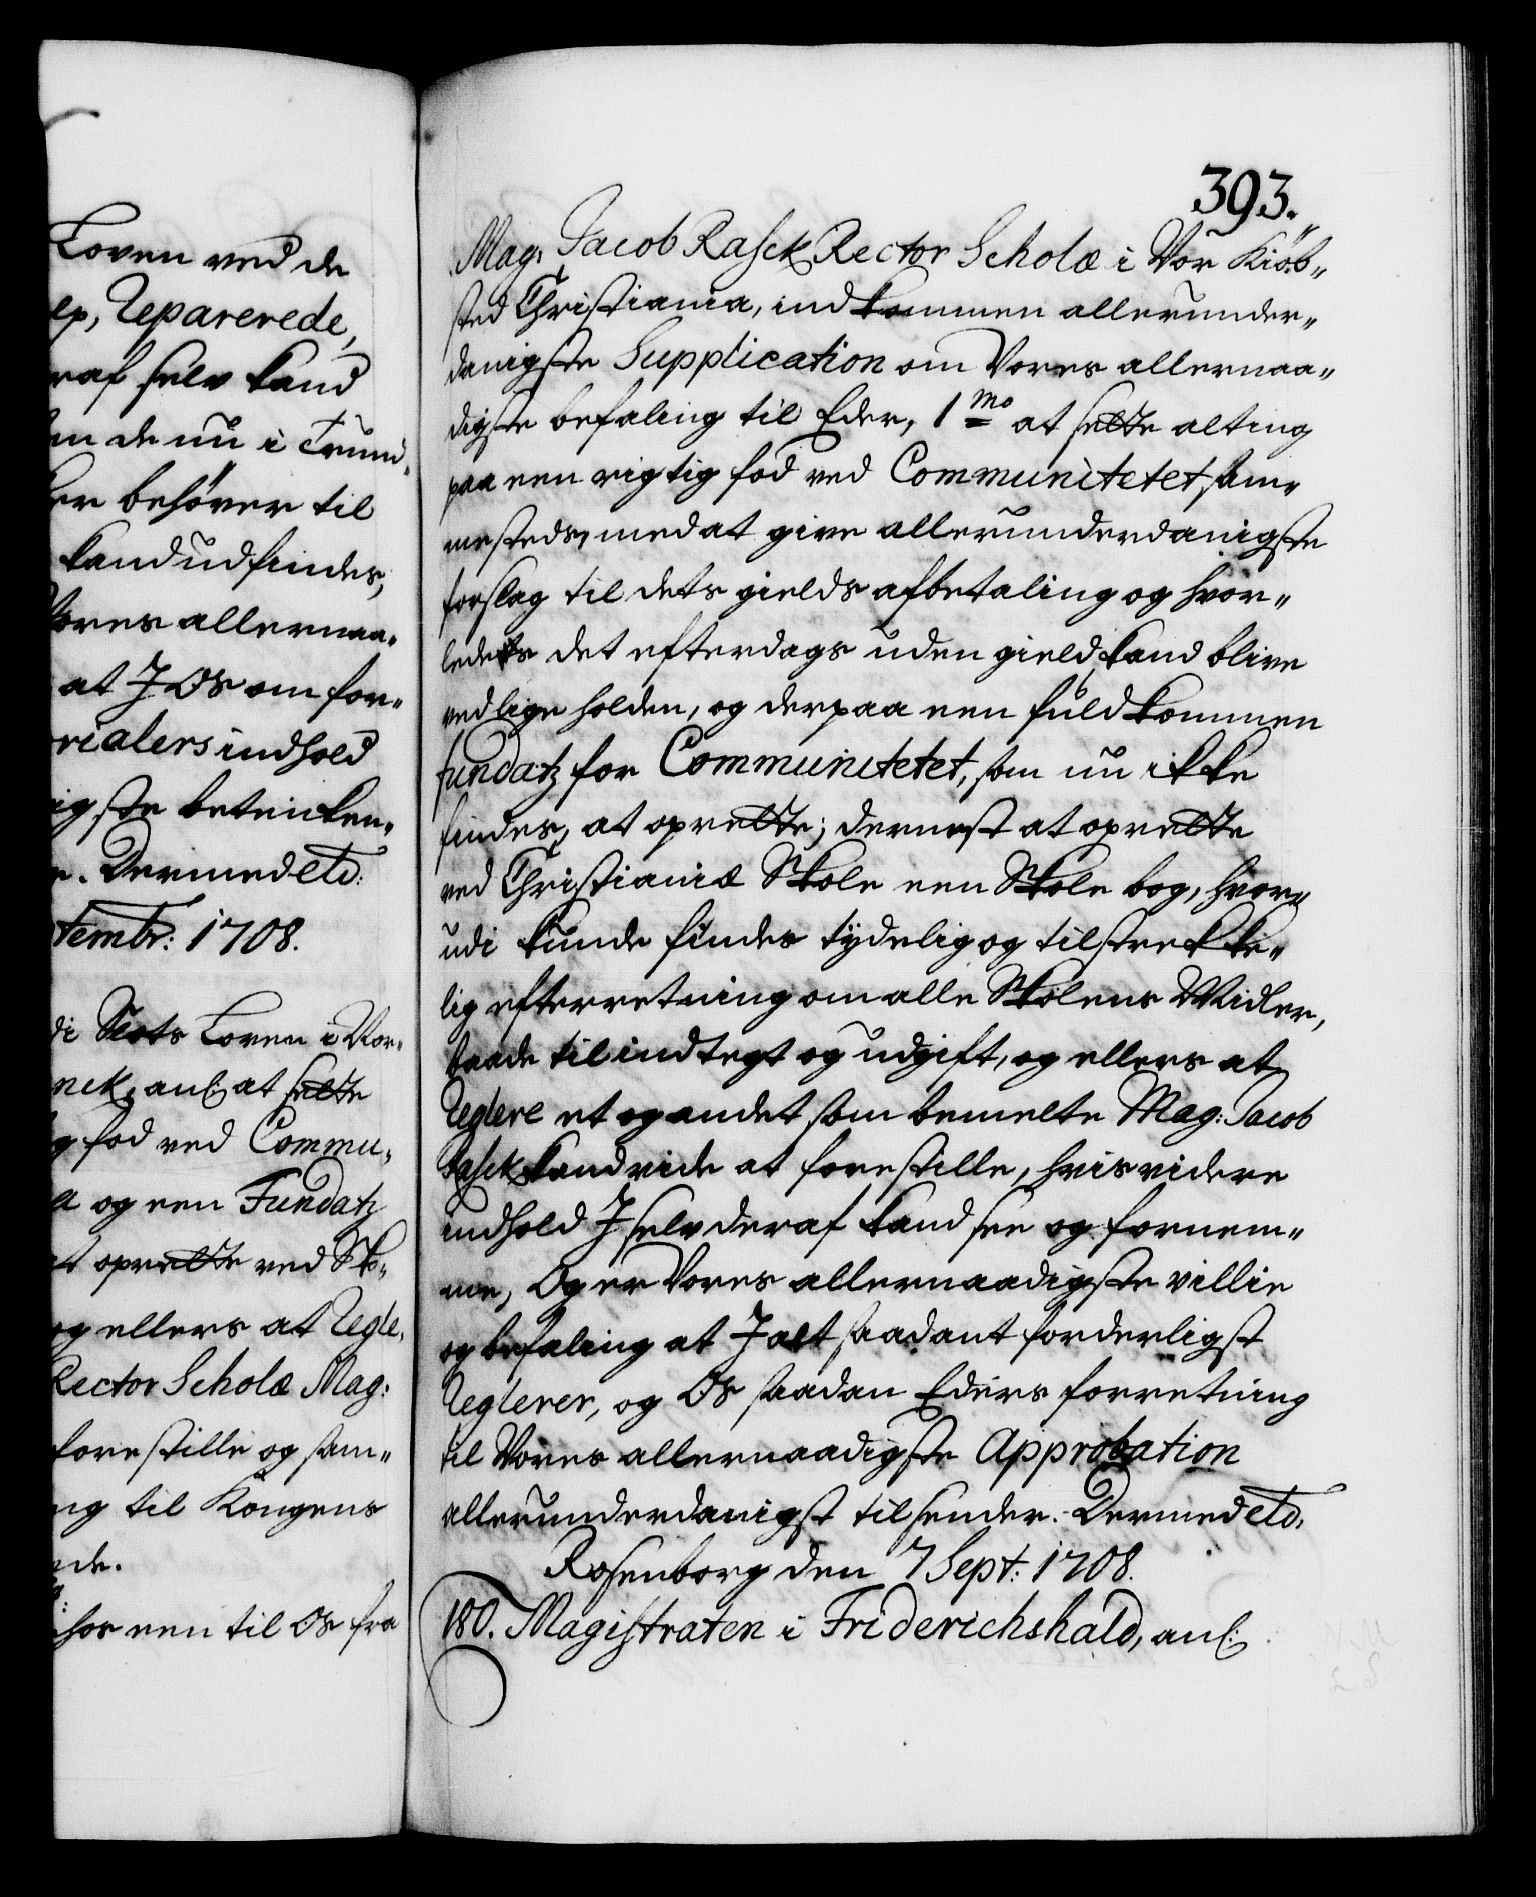 Loven ved de
ep, Reparerede,
raf selv kand
en de nu i Trund-
er behøver til
kand udfindes,
Vores allernaa-
at I Os om for-
rialers indhold
igste betencken-
e. Dermed etc:
tembr: 1708.
di Slots Loven i Nor-
nek, anl: at sætte
g fod ved Commu-
a og een Fundatz
t oprette ved Sko-
og ellers at Regle-
Rector Scholæ Mag:
forestille og sam-
ng til Kongens
nde.
hos een til Os fra
393.
Mag: Jacob Rasck Rector Scholæ i Vor Kiøb-
sted Christiania, indkommen allerunder-
danigste Supplication om Vores allernaa-
digste befaling til Eder, 1mo at sætte alting
paa een rigtig fod ved Communitetet sam-
mesteds, med at give allerunderdanigste
forslag til dets gields afbetaling og hvor-
ledes det efterdags uden gield kand blive
vedlige holden, og derpaa een fuldkommen
fundatz for Communitetet, som nu ikke
findes, at oprette; dernest at oprette
ved Christianiæ Skole een Skole bog, hvor-
udi kunde findes tydelig og tilstrekke-
lig efterretning om alle Skolens Midler,
baade til indtegt og udgift, og ellers at
Reglere et og andet som bemelte Mag: Jacob
Rasck kand vide at forestille, hvis videre
indhold I selv deraf kand see og fornem-
me, Og er Vores allernaadigste villie
og befaling at I alt saadant forderligst
Reglerer, og Os saadan Eders forretning
til Vores allernaadigste Approbation
allerunderdanigst tilsender. Dermed etc,
Rosenborg den 7 Sept: 1708.
180. Magistraten i Friderichshald, anl: